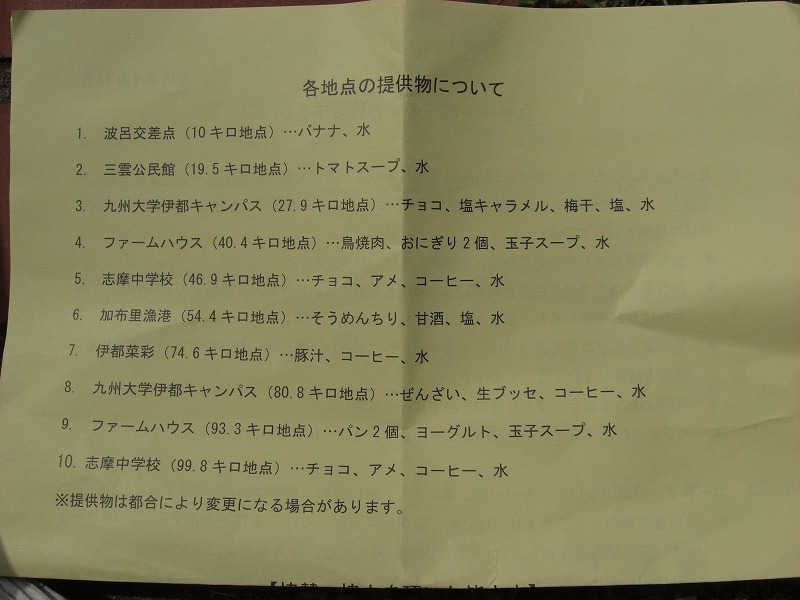 各地点の提供物について
1. 波呂交差点（10キロ地点）…バナナ、水
2. 三雲公民館（19.5キロ地点）…トマトスープ、水
3. 九州大学伊都キャンパス（27.9キロ地点）…チョコ、塩キャラメル、梅干、塩、水
4. ファームハウス（40.4キロ地点）…鳥焼肉、おにぎり2個、玉子スープ、水
5. 志摩中学校（46.9キロ地点）…チョコ、アメ、コーヒー、水
6. 加布里漁港（54.4キロ地点）…そうめんちり、甘酒、塩、水
7. 伊都菜彩（74.6キロ地点）…豚汁、コーヒー、水
8. 九州大学伊都キャンパス（80.8キロ地点）…ぜんざい、生ブッセ、コーヒー、水
9. ファームハウス（93.3キロ地点）…パン2個、ヨーグルト、玉子スープ、水
10. 志摩中学校（99.8キロ地点）…チョコ、アメ、コーヒー、水
※提供物は都合により変更になる場合があります。